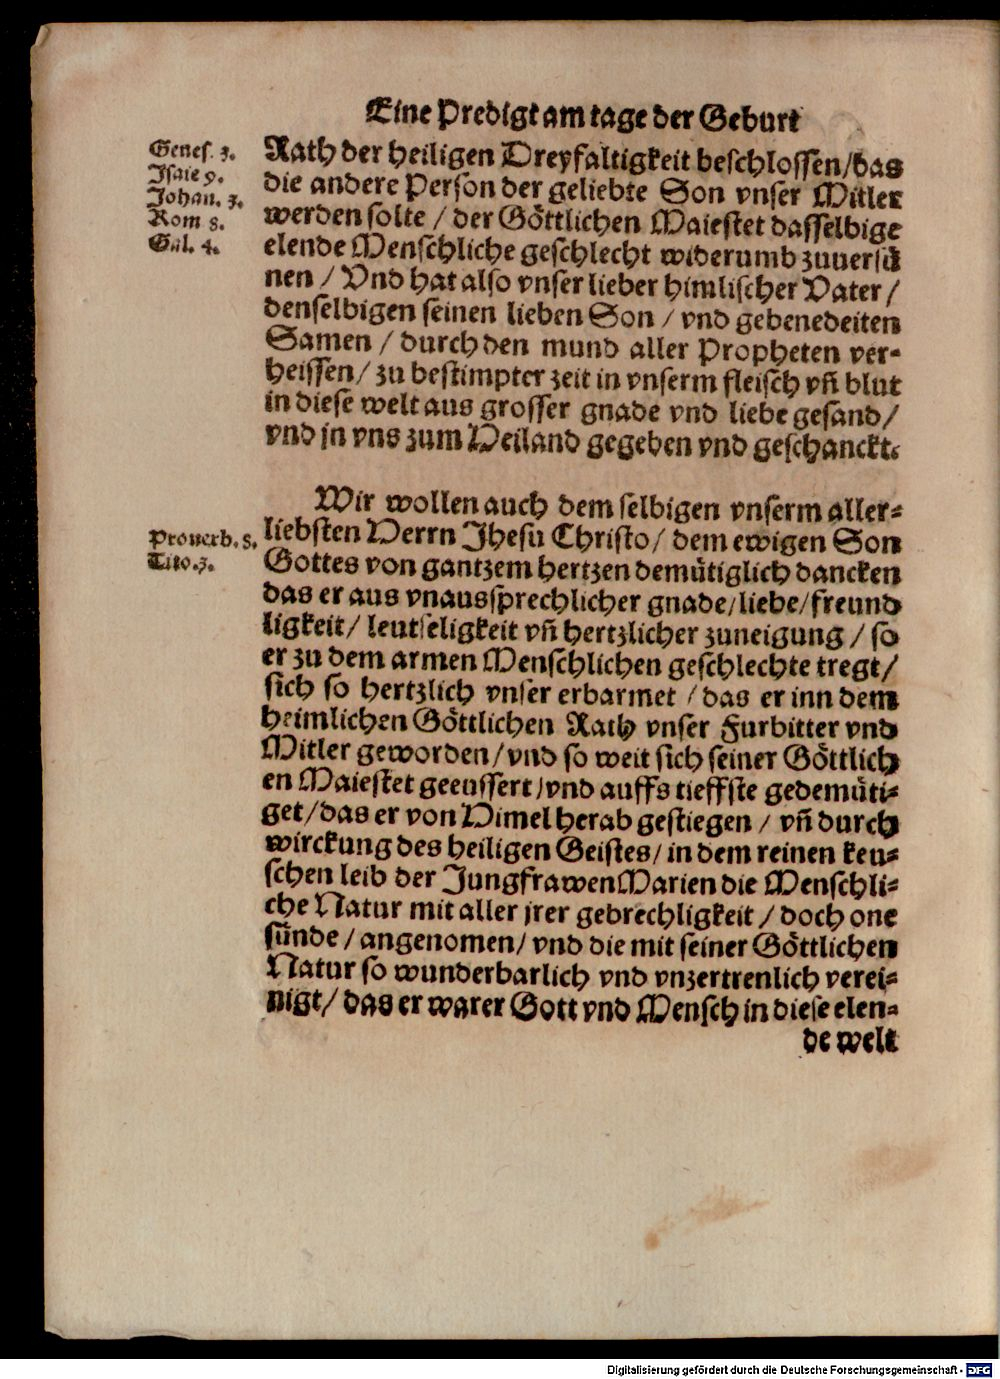 Eine Predigt am tage der Geburt
Genes. 3.
Isaie 9.
Johan. 3.
Rom 8.
Gal. 4.
Rath der heiligen Dreyfaltigkeit beschlossen/das
die andere Person der geliebte Son vnser Mitler
werden solte / der Göttlichen Maiestet dasselbige
elende Menschliche geschlecht widerumb zuuersü
nen / Vnd hat also vnser lieber himlischer Vater /
denselbigen seinen lieben Son / vnd gebenedeiten
Samen / durch den mund aller Propheten ver-
heissen / zu bestimpter zeit in vnserm fleisch vñ blut
in diese welt aus grosser gnade vnd liebe gesand /
vnd jn vns zum Heiland gegeben vnd geschanckt.
Wir wollen auch dem selbigen vnserm aller-
Prouerb. 8.
Tito. 3.
liebsten Herrn Jhesu Christo / dem ewigen Son
Gottes von gantzem hertzen demütiglich dancken
das er aus vnaussprechlicher gnade/liebe/freund
ligkeit / leutseligkeit vñ hertzlicher zuneigung / so
er zu dem armen Menschlichen geschlechte tregt /
sich so hertzlich vnser erbarmet / das er inn dem
heimlichen Göttlichen Rath vnser Furbitter vnd
Mitler geworden / vnd so weit sich seiner Göttlich
en Maiestet geeussert / vnd auffs tieffste gedemüti-
get / das er von Himel herab gestiegen / vñ durch
wirckung des heiligen Geistes / in dem reinen keu-
schen leib der Jungfrawen Marien die Menschli-
che Natur mit aller jrer gebrechligkeit / doch one
sünde / angenomen / vnd die mit seiner Göttlichen
Natur so wunderbarlich vnd vnzertrenlich verei-
nigt / das er warer Gott vnd Mensch in diese elen-
de welt
Digitalisierung gefördert durch die Deutsche Forschungsgemeinschaft - DFG